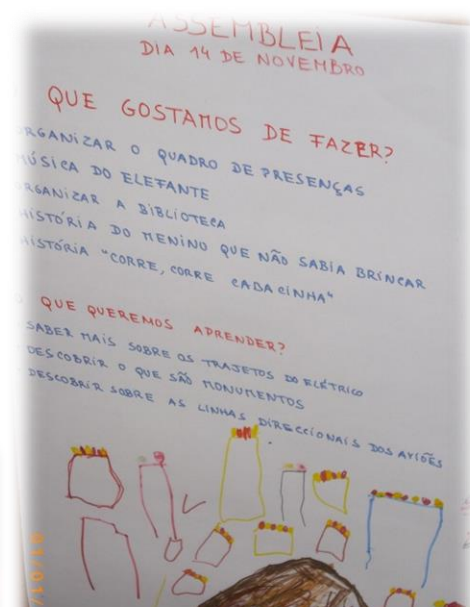 ASSEMBLEIA
DIA 14 DE NOVEMBRO
QUE GOSTAMOS DE FAZER?
ORGANIZAR O QUADRO DE PRESENÇAS
MÚSICA DO ELEFANTE
ORGANIZAR A BIBLIOTECA
HISTÓRIA DO MENINO QUE NÃO SABIA BRINCAR
HISTÓRIA "CORRE, CORRE CABACINHA"
QUE QUEREMOS APRENDER?
SABER MAIS SOBRE OS TRAJETOS DO ELÉTRICO
DESCOBRIR O QUE SÃO MONUMENTOS
DESCOBRIR SOBRE AS LINHAS DIRECCIONAIS DOS AVIÕES